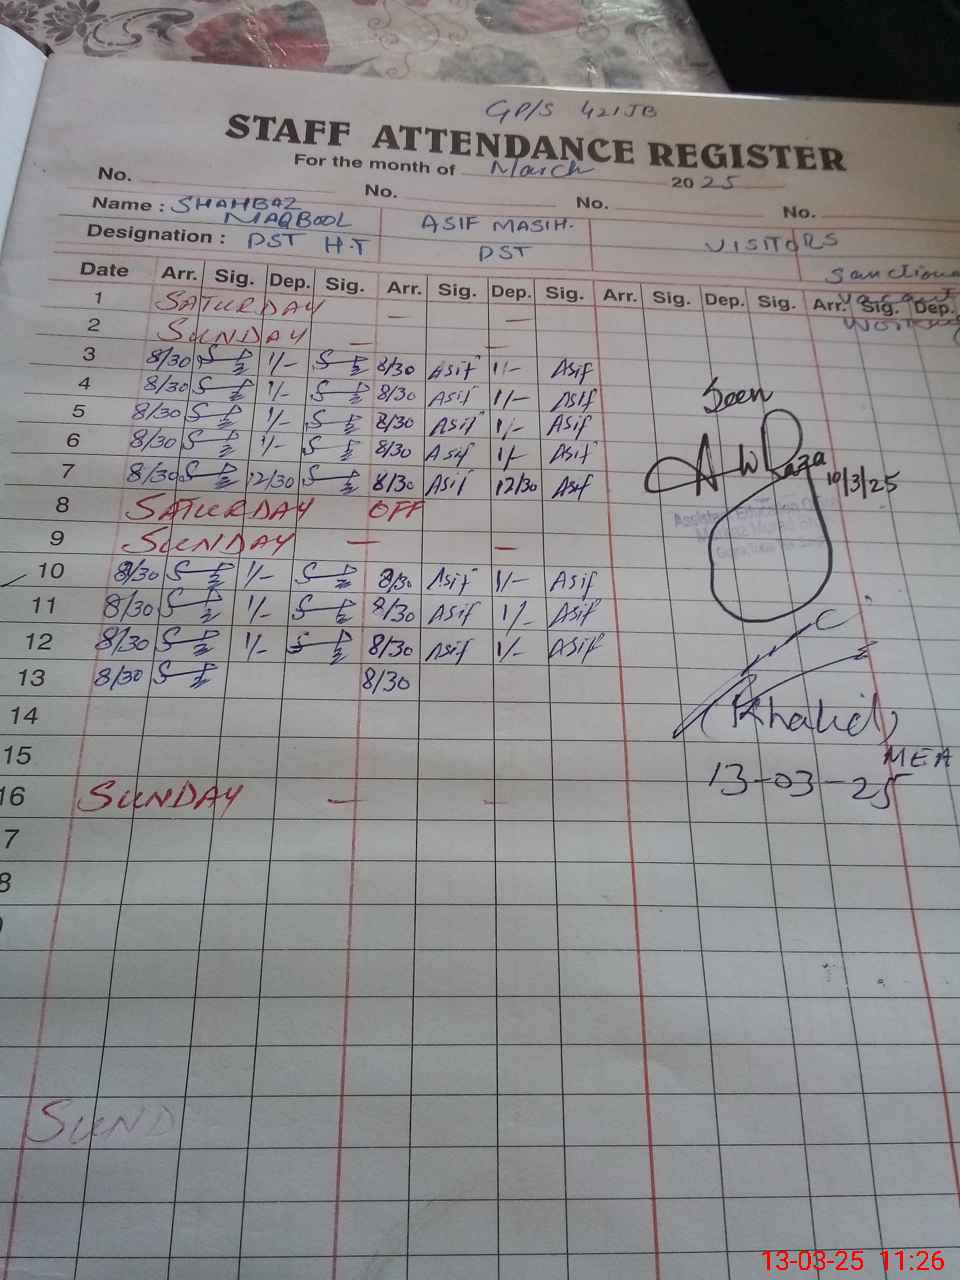 GP/S 421JB
STAFF ATTENDANCE REGISTER
For the month of March 2025
No. No. No. No.
Name : SHAHBAZ MAQBOOL ASIF MASIH. VISITORS
Designation : PST H.T PST Sanctiona
Date Arr. Sig. Dep. Sig. Arr. Sig. Dep. Sig. Arr. Sig. Dep. Sig. Arr. Sig. Dep.
1 SATURDAY — —
2 SUNDAY — —
3 8/30 1/- 8/30 Asif 1/- Asif
4 8/30 1/- 8/30 Asif 1/- Asif
5 8/30 1/- 8/30 Asif 1/- Asif
6 8/30 1/- 8/30 Asif 1/- Asif
7 8/30 12/30 8/30 Asif 12/30 Asif
8 SATURDAY OFF
9 SUNDAY — —
10 8/30 1/- 8/30 Asif 1/- Asif
11 8/30 1/- 8/30 Asif 1/- Asif
12 8/30 1/- 8/30 Asif 1/- Asif
13 8/30 8/30
14
15
16 SUNDAY — —
7
8
SUND
Seen
10/3/25
(Khalid)
MEA
13-03-25
13-03-25 11:26